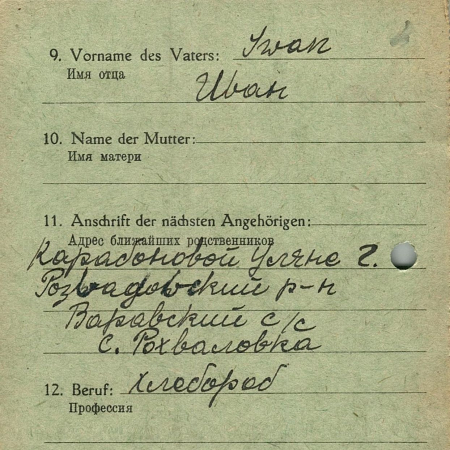 9. Vorname des Vaters: Iwan
Имя отца
Иван
10. Name der Mutter:
Имя матери
11. Anschrift der nächsten Angehörigen:
Адрес ближайших родственников
Карабоновой Уляне Г.
Розвадовский р-н
Варавский с/с
с. Рохваловка
12. Beruf: Хлебороб
Профессия